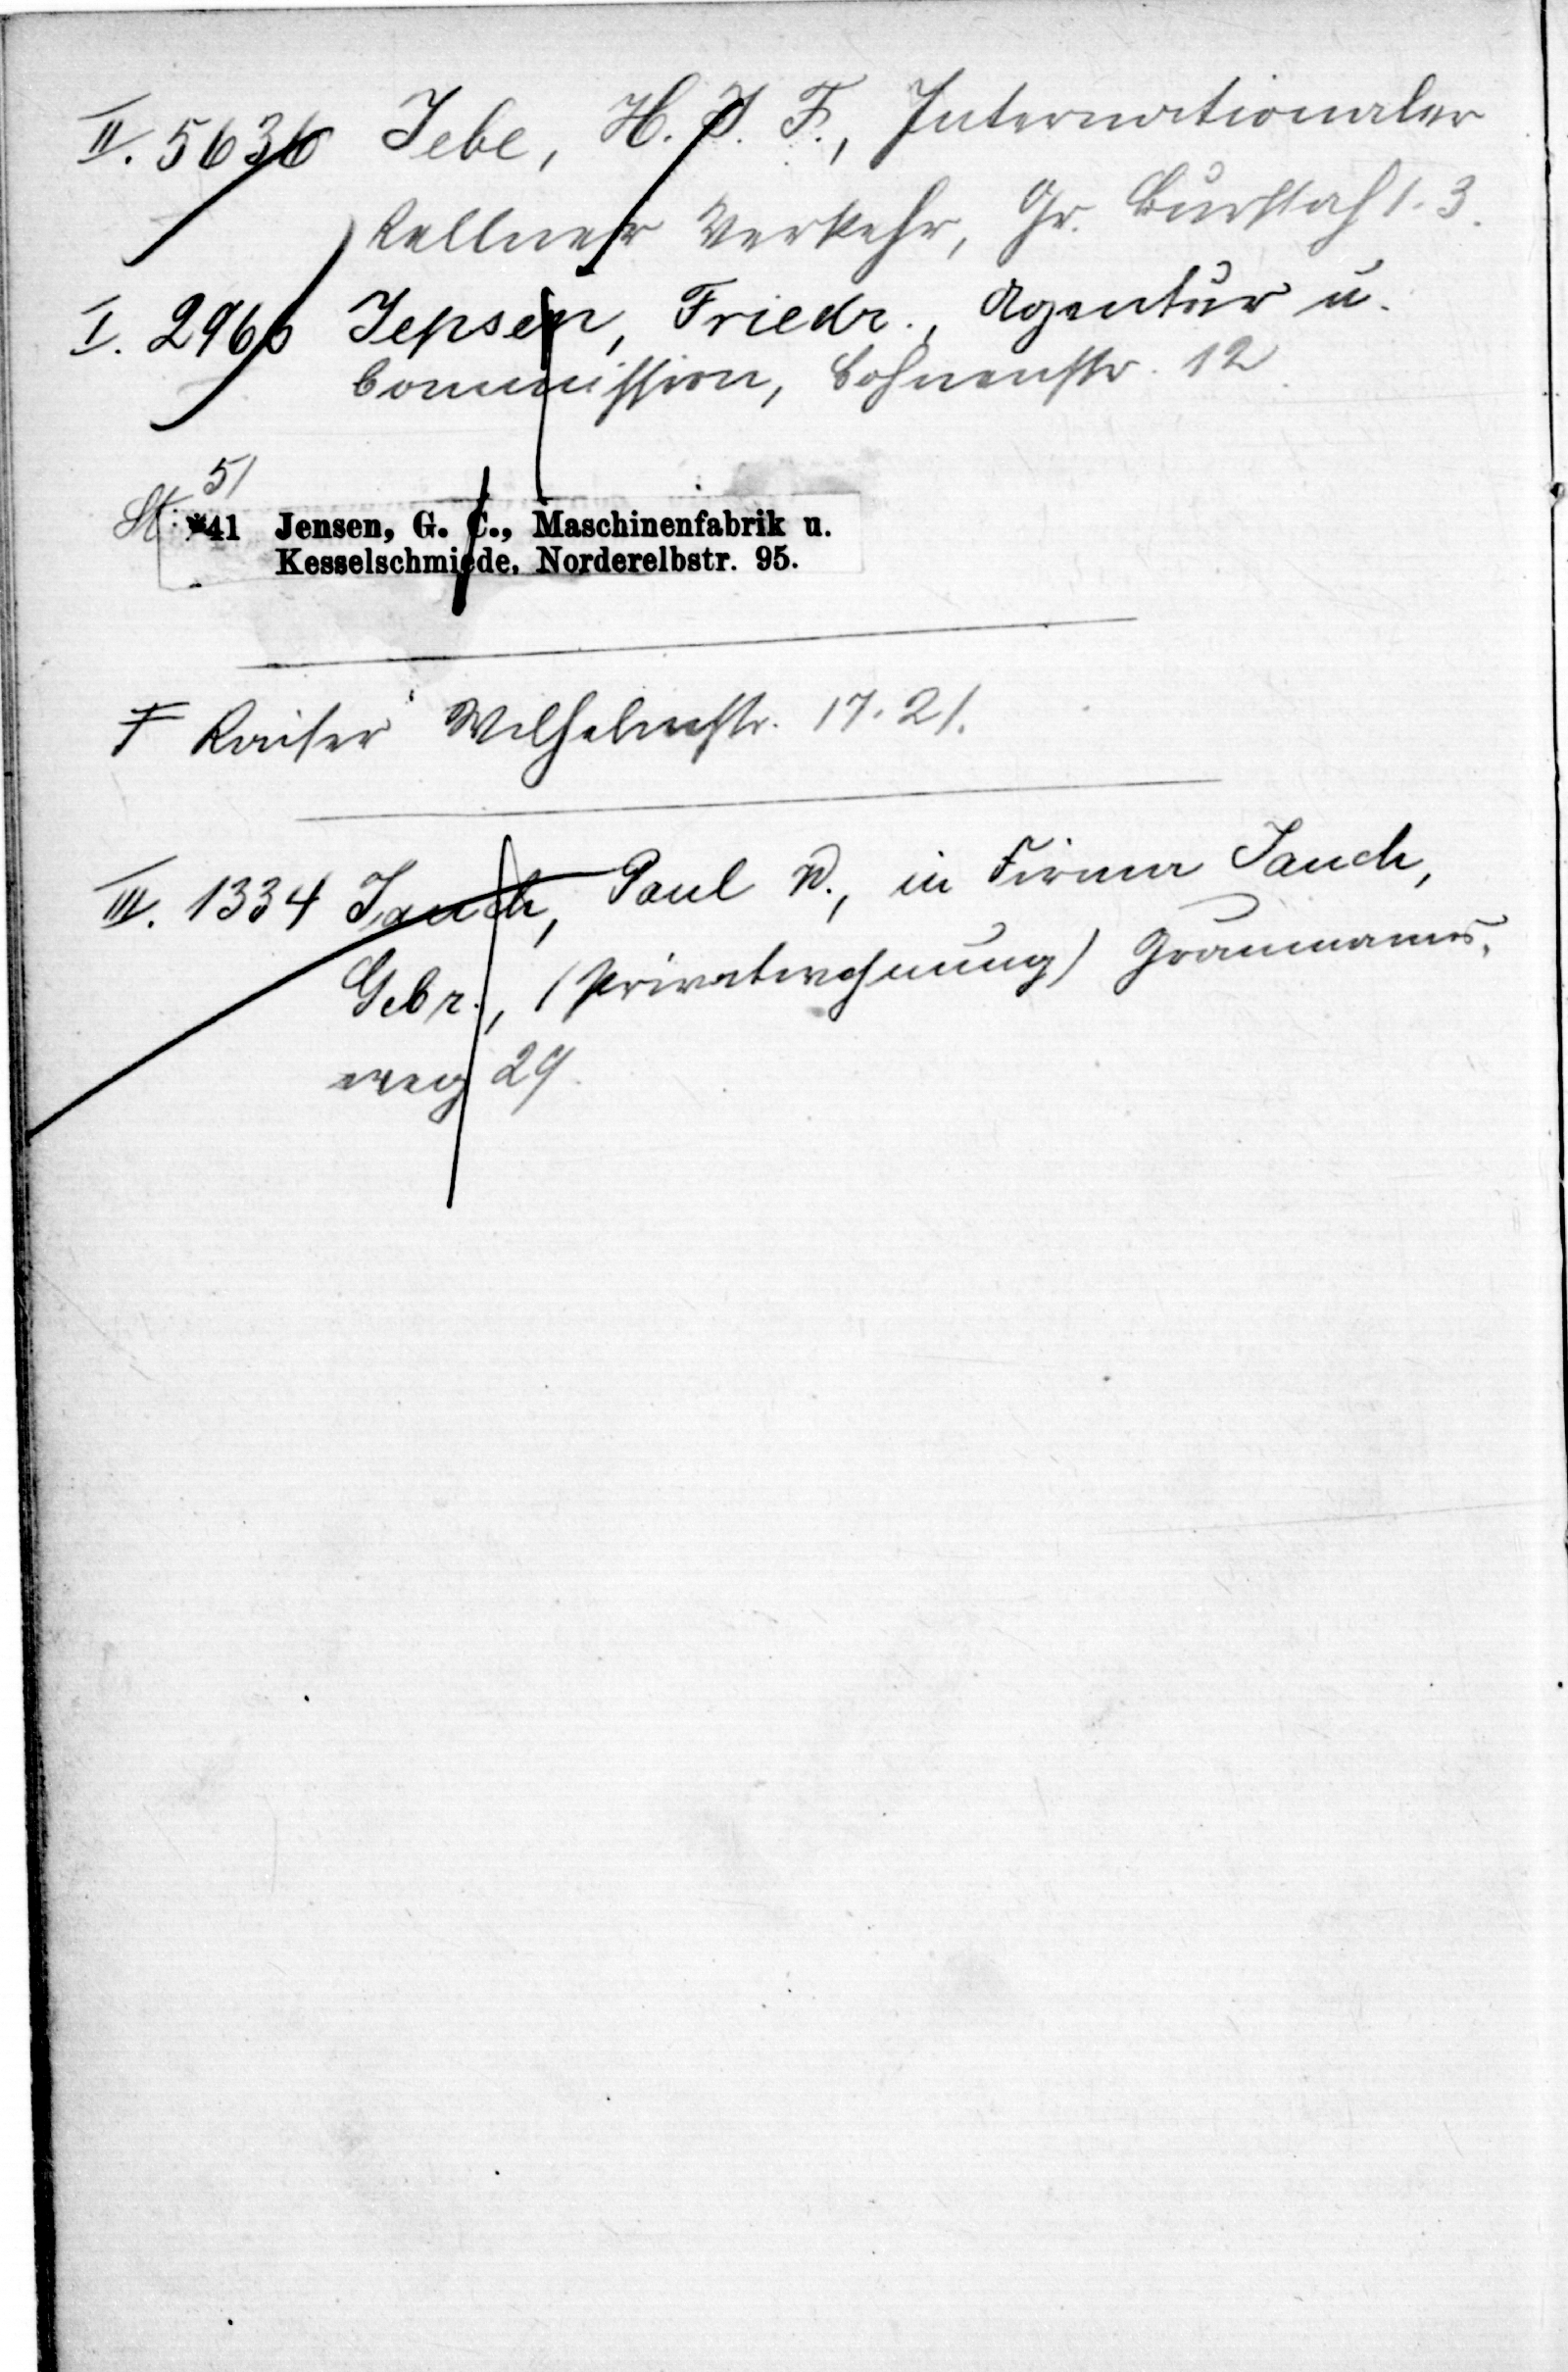 II. 5636 Jebe, H. J. F., Internationaler
Kellner Verkehr, Gr. Burstah 1.3.
I. 2960 Jepsen, Friedr., Agentur u.
Commission, Bohnenstr. 12.
51
St: *41 Jensen, G. C., Maschinenfabrik u.
Kesselschmiede, Norderelbstr. 95.
F Kaiser Wilhelmstr. 17.21.
III. 1334 Jauch, Paul P., in Firma Jauch,
Gebr., (Privatwohnung) Graumanns-
weg 29.